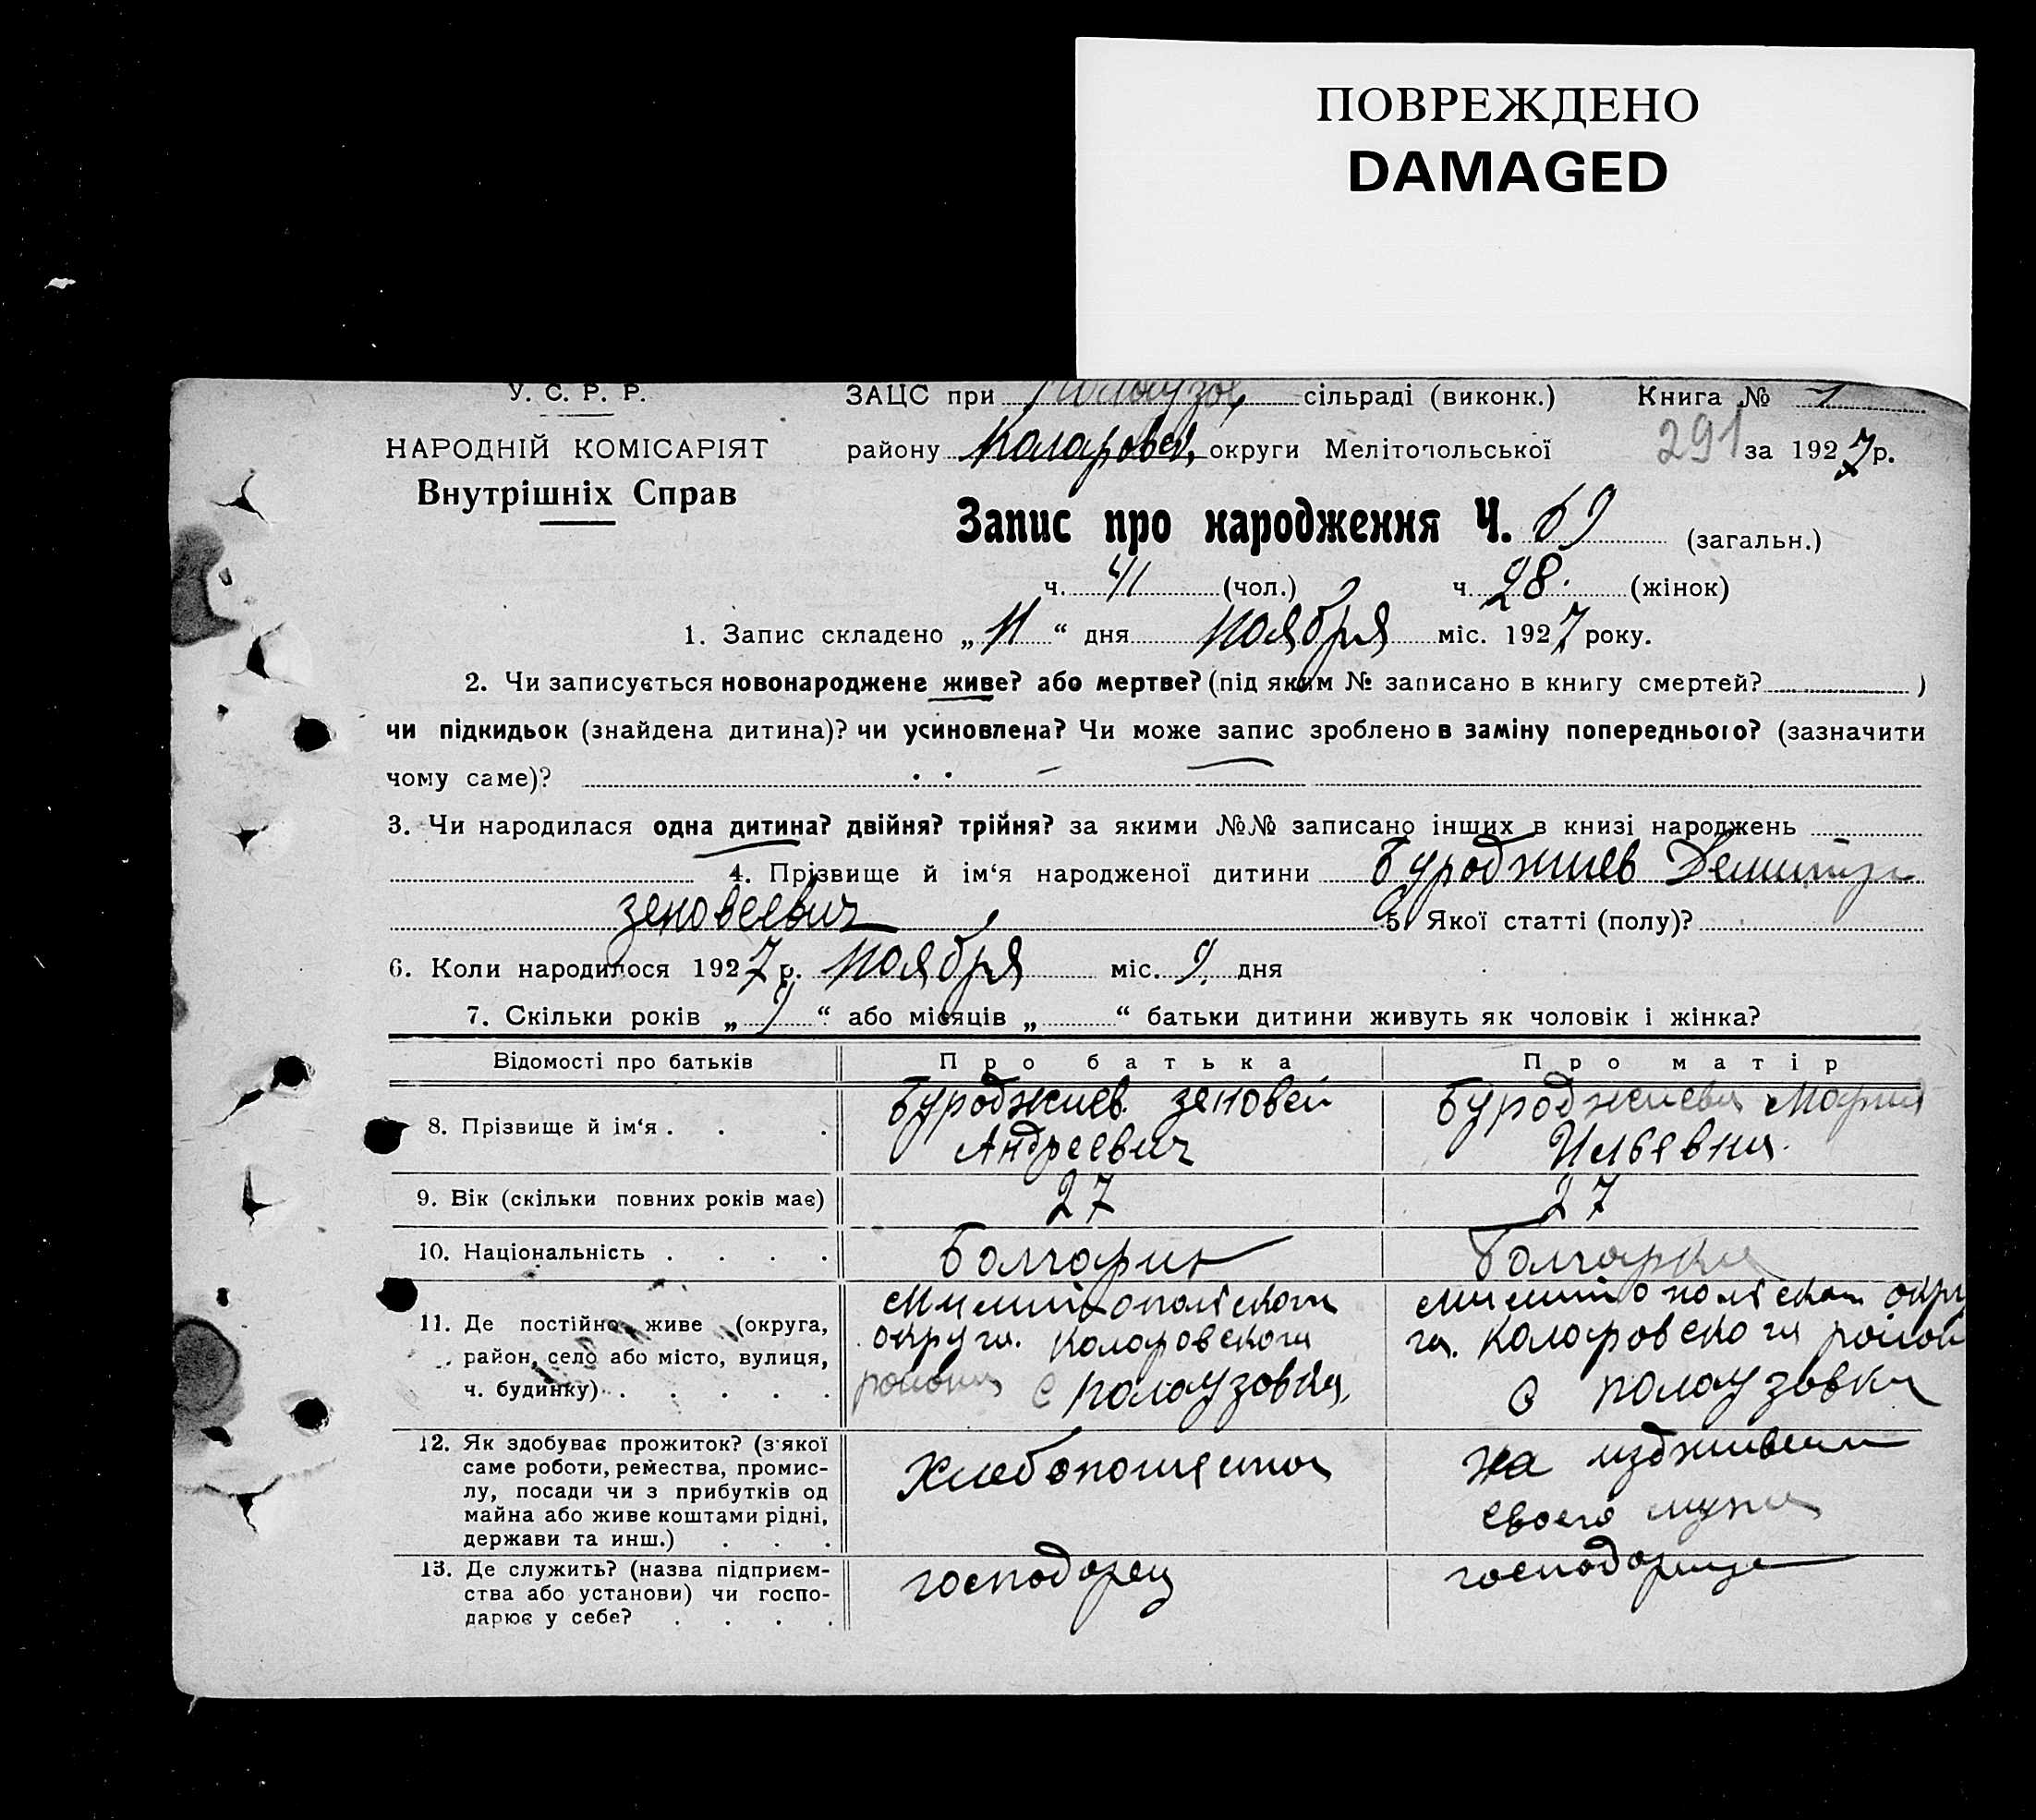 ПОВРЕЖДЕНО
DAMAGED
У. С. Р. Р.
НАРОДНІЙ КОМІСАРІЯТ
Внутрішніх Справ
ЗАЦС при Полаузов, сільраді (виконк.) Книга № 1
району Коларовск, округи Мелітопольської 291 за 1927 р.
Запис про народження Ч. 69 (загальн.)
ч. 41 (чол.) ч. 28. (жінок)
1. Запис складено „11“ дня Ноября міс. 1927 року.
2. Чи записується новонароджене живе? або мертве? (під яким № записано в книгу смертей? )
чи підкидьок (знайдена дитина)? чи усиновлена? Чи може запис зроблено в заміну попереднього? (зазначити
чому саме)?
3. Чи народилася одна дитина? двійня? трійня? за якими №№ записано інших в книзі народжень
4. Прізвище й ім‘я народженої дитини Буроджиев Демитри
зеновеевич 5. Якої статті (полу)?
6. Коли народилося 1927 р. Ноября міс. 9. дня
7. Скільки років „9“ або місяців „ “ батьки дитини живуть як чоловік і жінка?
Відомості про батьків Про батька Про матір
8. Прізвище й ім‘я . . . Буроджиев зеновей Буроджиева Мария
Андреевич Ильевна.
9. Вік (скільки повних років має) 27 27
10. Національність . . . . Болгарин Болгарка
11. Де постійно живе (округа, район, село або місто, вулиця, ч. будинку) . . . . .
округа. Коларовскога
района с Полаузовка,
га. Коларовскога район
с Полаузовка
12. Як здобуває прожиток? (з'якої саме роботи, ремества, промислу, посади чи з прибутків од майна або живе коштами рідні, держави та инш.) . . .
Хлебопашества
на
своего мужа
13. Де служить? (назва підприємства або установи) чи господарює у себе? . . . .
господарец господарица